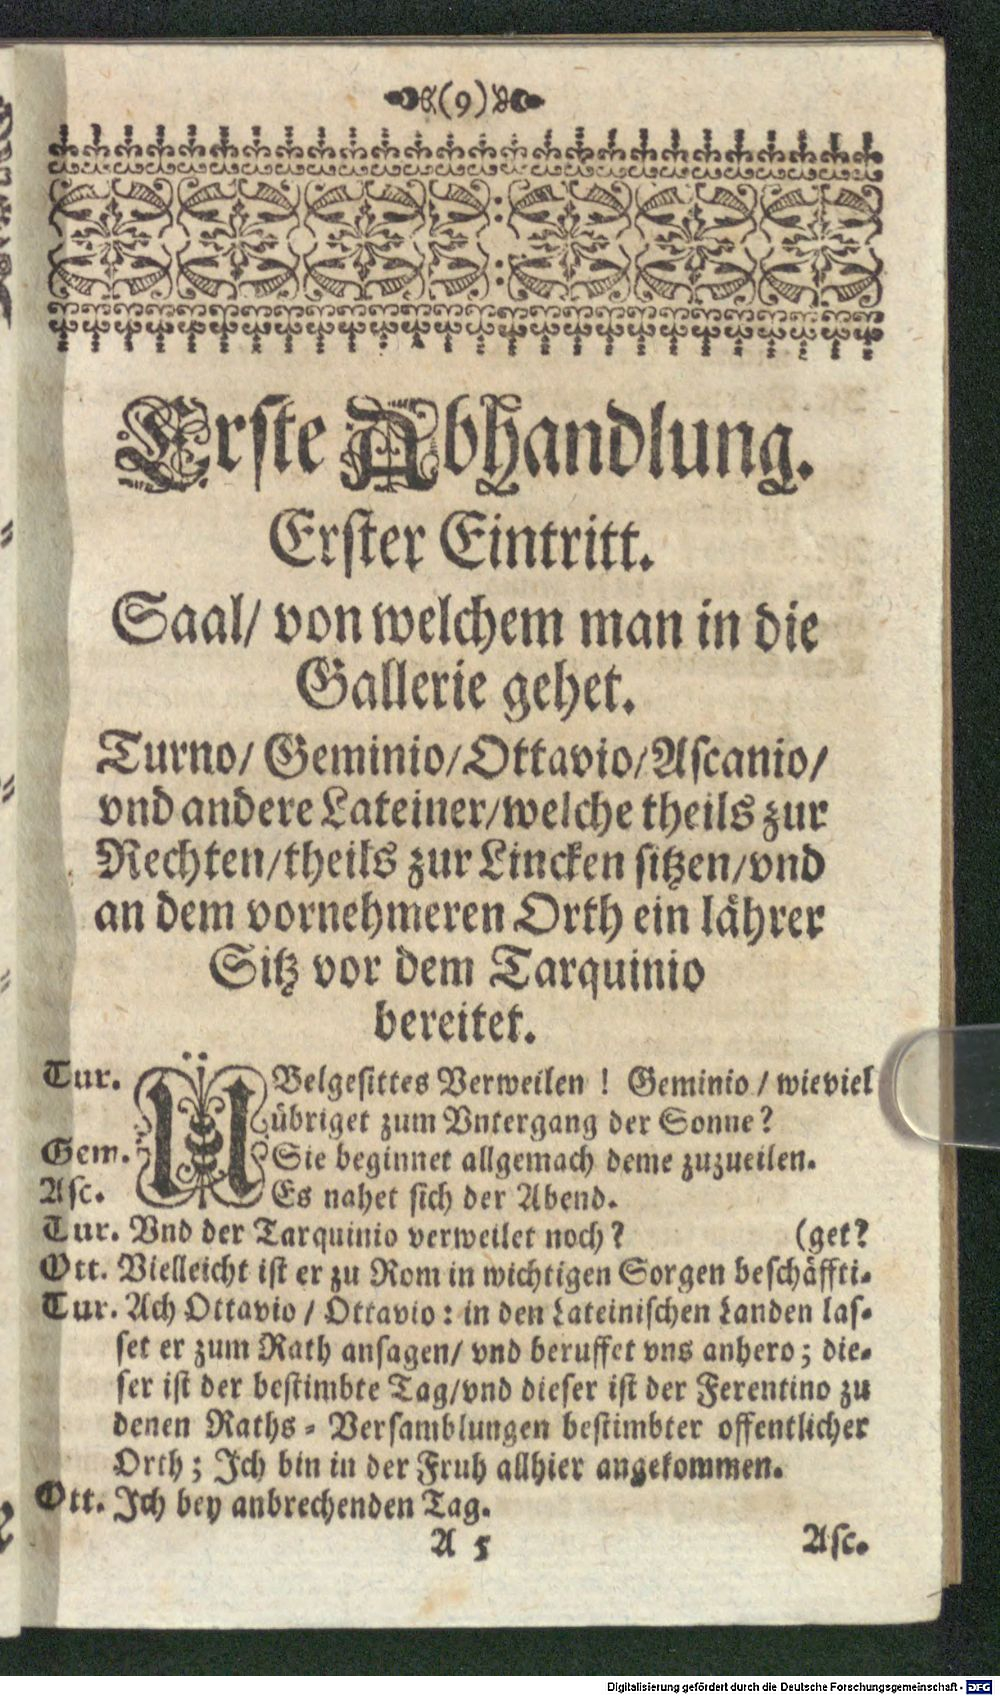 (9)
Erste Abhandlung.
Erster Eintritt.
Saal/ von welchem man in die
Gallerie gehet.
Turno/ Geminio/ Ottavio/ Ascanio/
vnd andere Lateiner/ welche theils zur
Rechten/ theils zur Lincken sitzen/ vnd
an dem vornehmeren Orth ein lährer
Sitz vor dem Tarquinio
bereitet.
Tur. ÜBelgesittes Verweilen ! Geminio / wieviel
übriget zum Vntergang der Sonne?
Gem. Sie beginnet allgemach deme zuzueilen.
Asc. Es nahet sich der Abend.
Tur. Vnd der Tarquinio verweilet noch? (get?
Ott. Vielleicht ist er zu Rom in wichtigen Sorgen beschäffti-
Tur. Ach Ottavio / Ottavio : in den Lateinischen Landen las-
set er zum Rath ansagen/ vnd beruffet vns anhero ; die-
ser ist der bestimbte Tag/ vnd dieser ist der Ferentino zu
denen Raths - Versamblungen bestimbter offentlicher
Orth ; Ich bin in der Fruh allhier angekommen.
Ott. Ich bey anbrechenden Tag.
A 5 Asc.
Digitalisierung gefördert durch die Deutsche Forschungsgemeinschaft - DFG